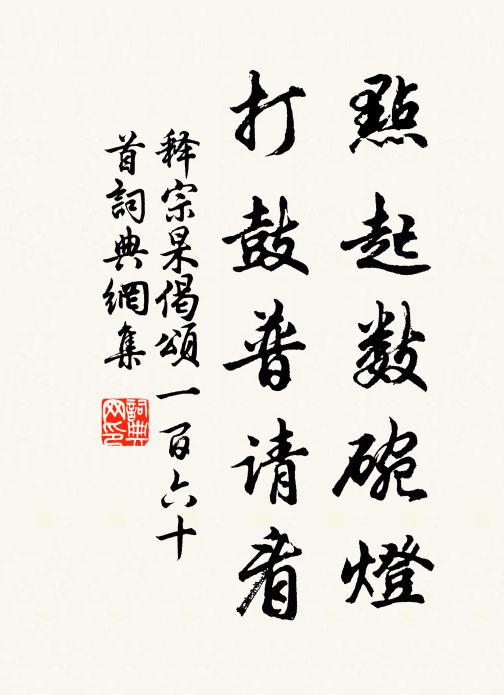 點起数碗燈
打鼓普请看
释宗杲偈頌一百六十
首詞典網集
詞典
网印